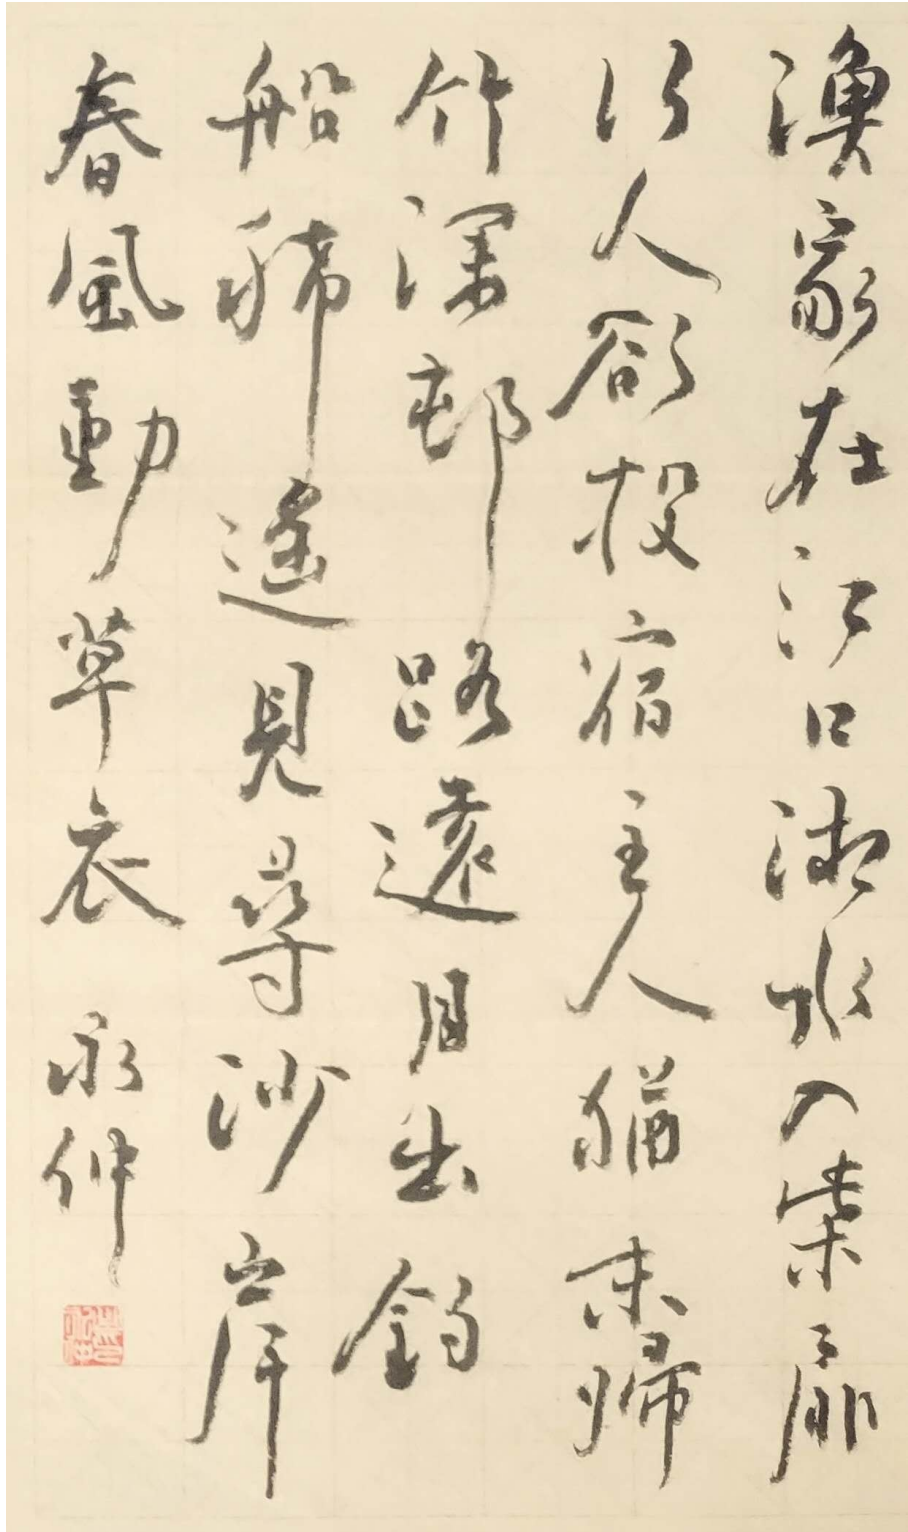 漁家在江口潮水入柴扉
行人欲投宿主人猶未歸
竹深邨路遠月出釣
船稀遙見尋沙岸
春風動草衣 永仲